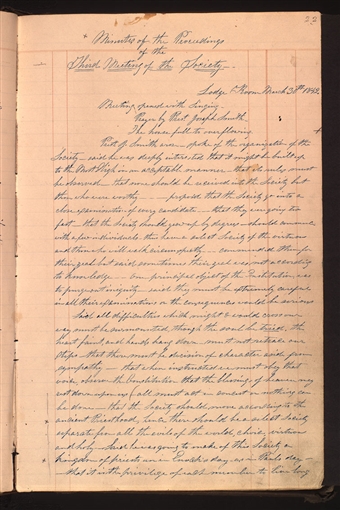 22
Minutes of the Proceedings
of the
Third Meeting of the Society
Lodge Room March 30th 1842.
Meeting opened with Singing.
Prayer by Prest. Joseph Smith
The house full to overflowing.
Prest. Smith arose— spoke of the organization of the
Society— said he was deeply interested that it might be built up
to the Most High in an acceptable manner— that its rules must
be observed— that none should be received into the Society but
those who were worthy— propos'd that the Society go into a
close examination of every candidate— that they were going too
fast— that the Society should grow up by degrees— should commence
with a few individuals— thus have a select Society of the virtuous
and those who will walk circumspectly— commended them for
their zeal but said sometimes their zeal was not according
to knowledge— One principal object of the Institution was
to purge out iniquity— said they must be extremely careful
in all their examinations or the consequences would be serious
Said all difficulties which might & would cross our
way must be surmounted, though the soul be tried, the
heart faint, and hands hang down— must not retrace our
steps— that there must be decision of character aside from
sympathy— that when instructed we must obey that
voice, observe the Constitution that the blessings of heaven may
rest down upon us— all must act in concert or nothing can
be done— that the Society should move according to the
ancient Priesthood, hence there should be a select Society
separate from all the evils of the world, choice, virtuous
and holy— Said he was going to make of this Society a
kingdom of priests as in Enoch's day— as in Pauls day—
that it is the privilege of each member to live long